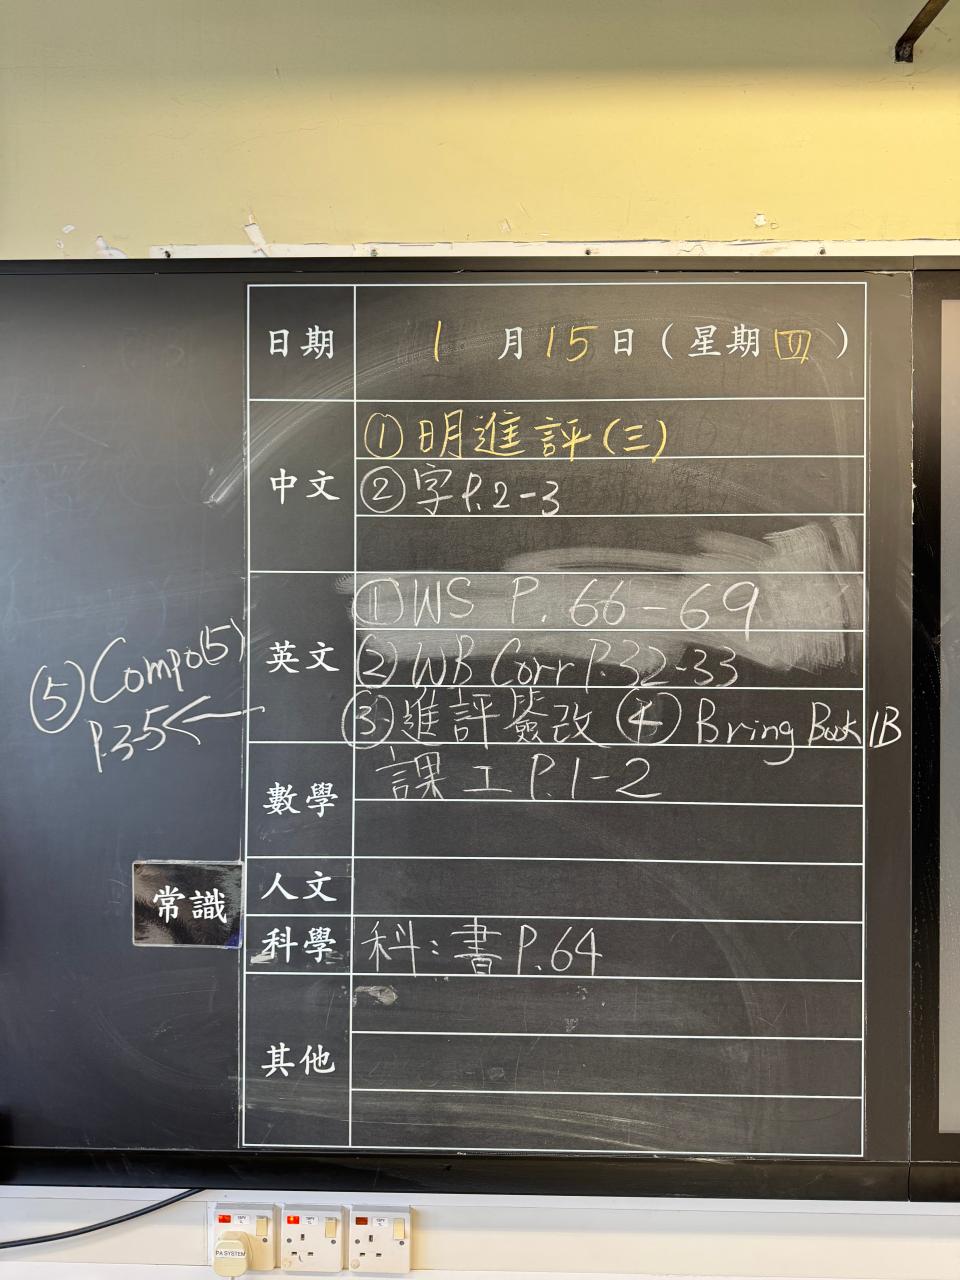 日期 1月15日（星期四）
中文
①明進評(三)
②字P.2-3
英文
①WS P. 66-69
②WB Corr P.32-33
③進評簽改 ④ Bring Book 1B
⑤Compo(5)
P.3-5
數學
課工P.1-2
人文
常識
科學 科：書P.64
其他
PA SYSTEM